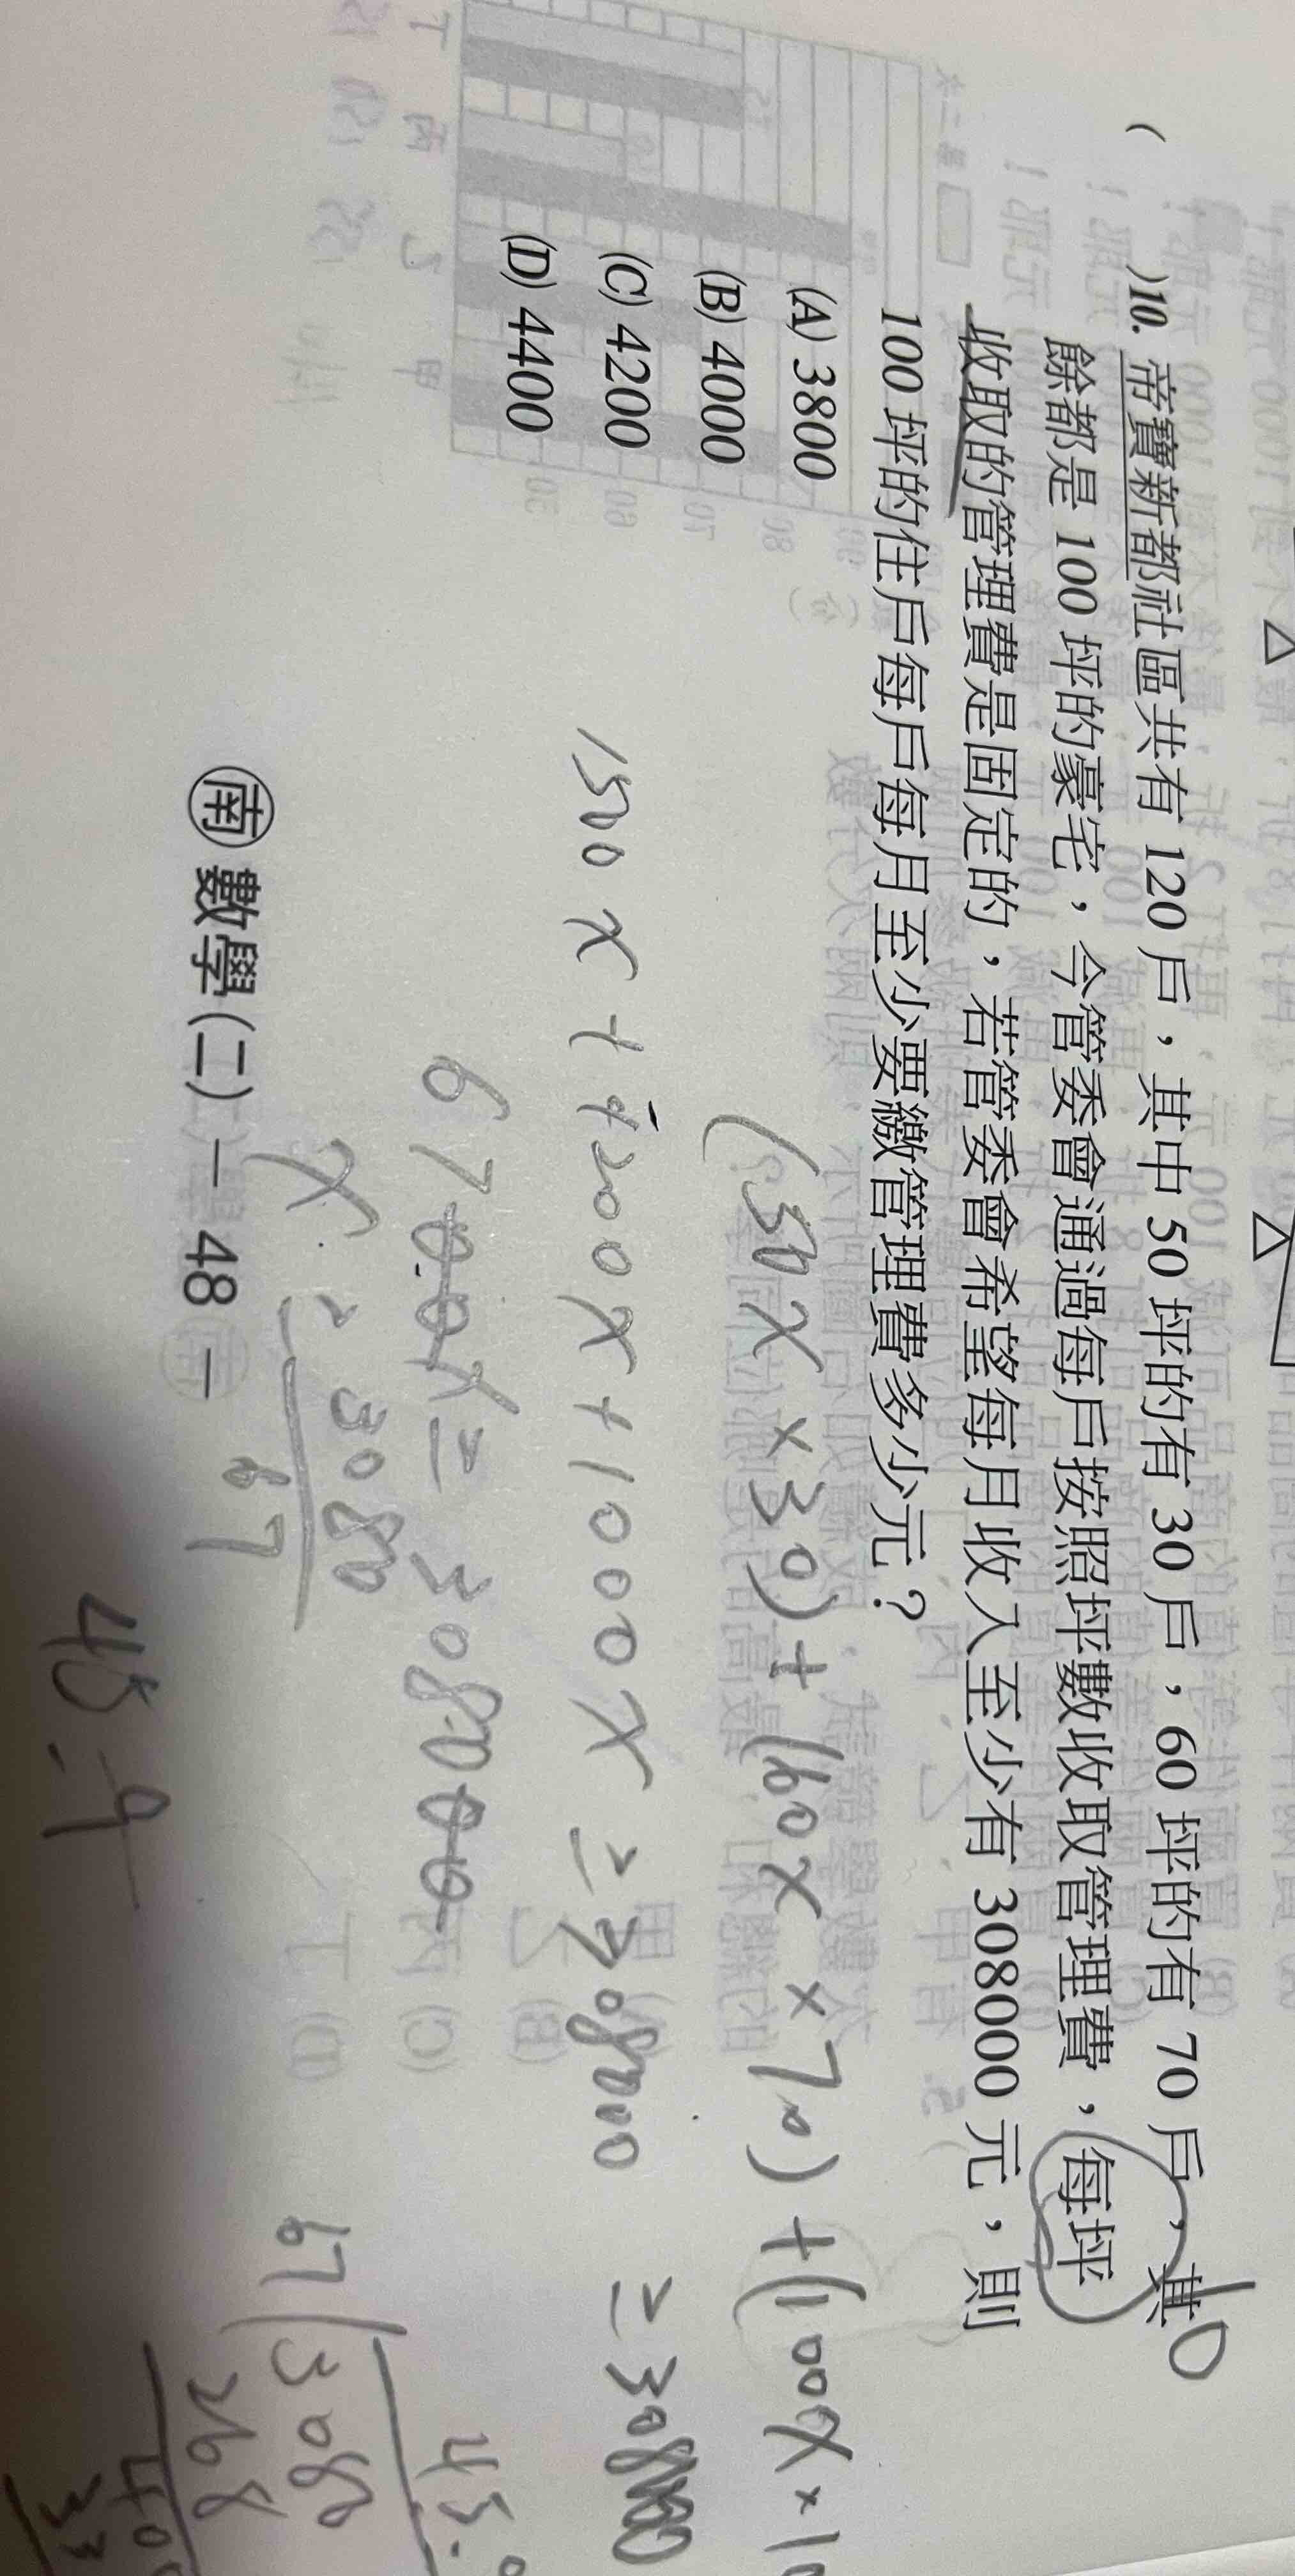 ( )10. 帝寶新都社區共有 120 戶，其中 50 坪的有 30 戶，60 坪的有 70 戶，其
餘都是 100 坪的豪宅，今管委會通過每戶按照坪數收取管理費，每坪
收取的管理費是固定的，若管委會希望每月收入至少有 308000 元，則
100 坪的住戶每戶每月至少要繳管理費多少元？
(A) 3800
(B) 4000
(C) 4200
(D) 4400
(50x×30)+(60x×70)+(100x×1
≥308000
1500x+4200x+1000x≥308000
6700x≥308000
x≥3080
67
45.9
67 3080
268
南 數學(二)－48－